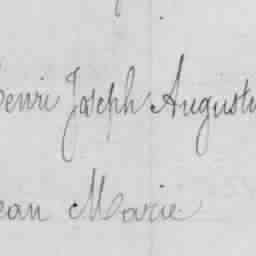 Henri Joseph Augustin
Jean Marie